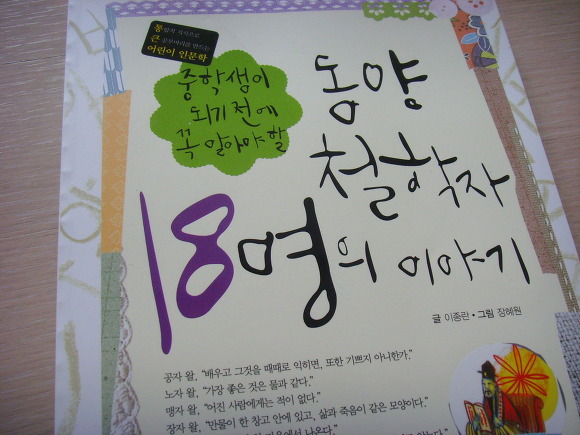 통합적 지식으로
큰 공부머리를 만드는
어린이 인문학
중학생이
되기 전에
꼭 알아야 할
동양
철학자
18명의 이야기
글 이종란 • 그림 장혜원
공자 왈, "배우고 그것을 때때로 익히면, 또한 기쁘지 아니한가."
노자 왈, "가장 좋은 것은 물과 같다."
맹자 왈, "어진 사람에게는 적이 없다."
장자 왈, "만물이 한 창고 안에 있고, 삶과 죽음이 같은 모양이다."